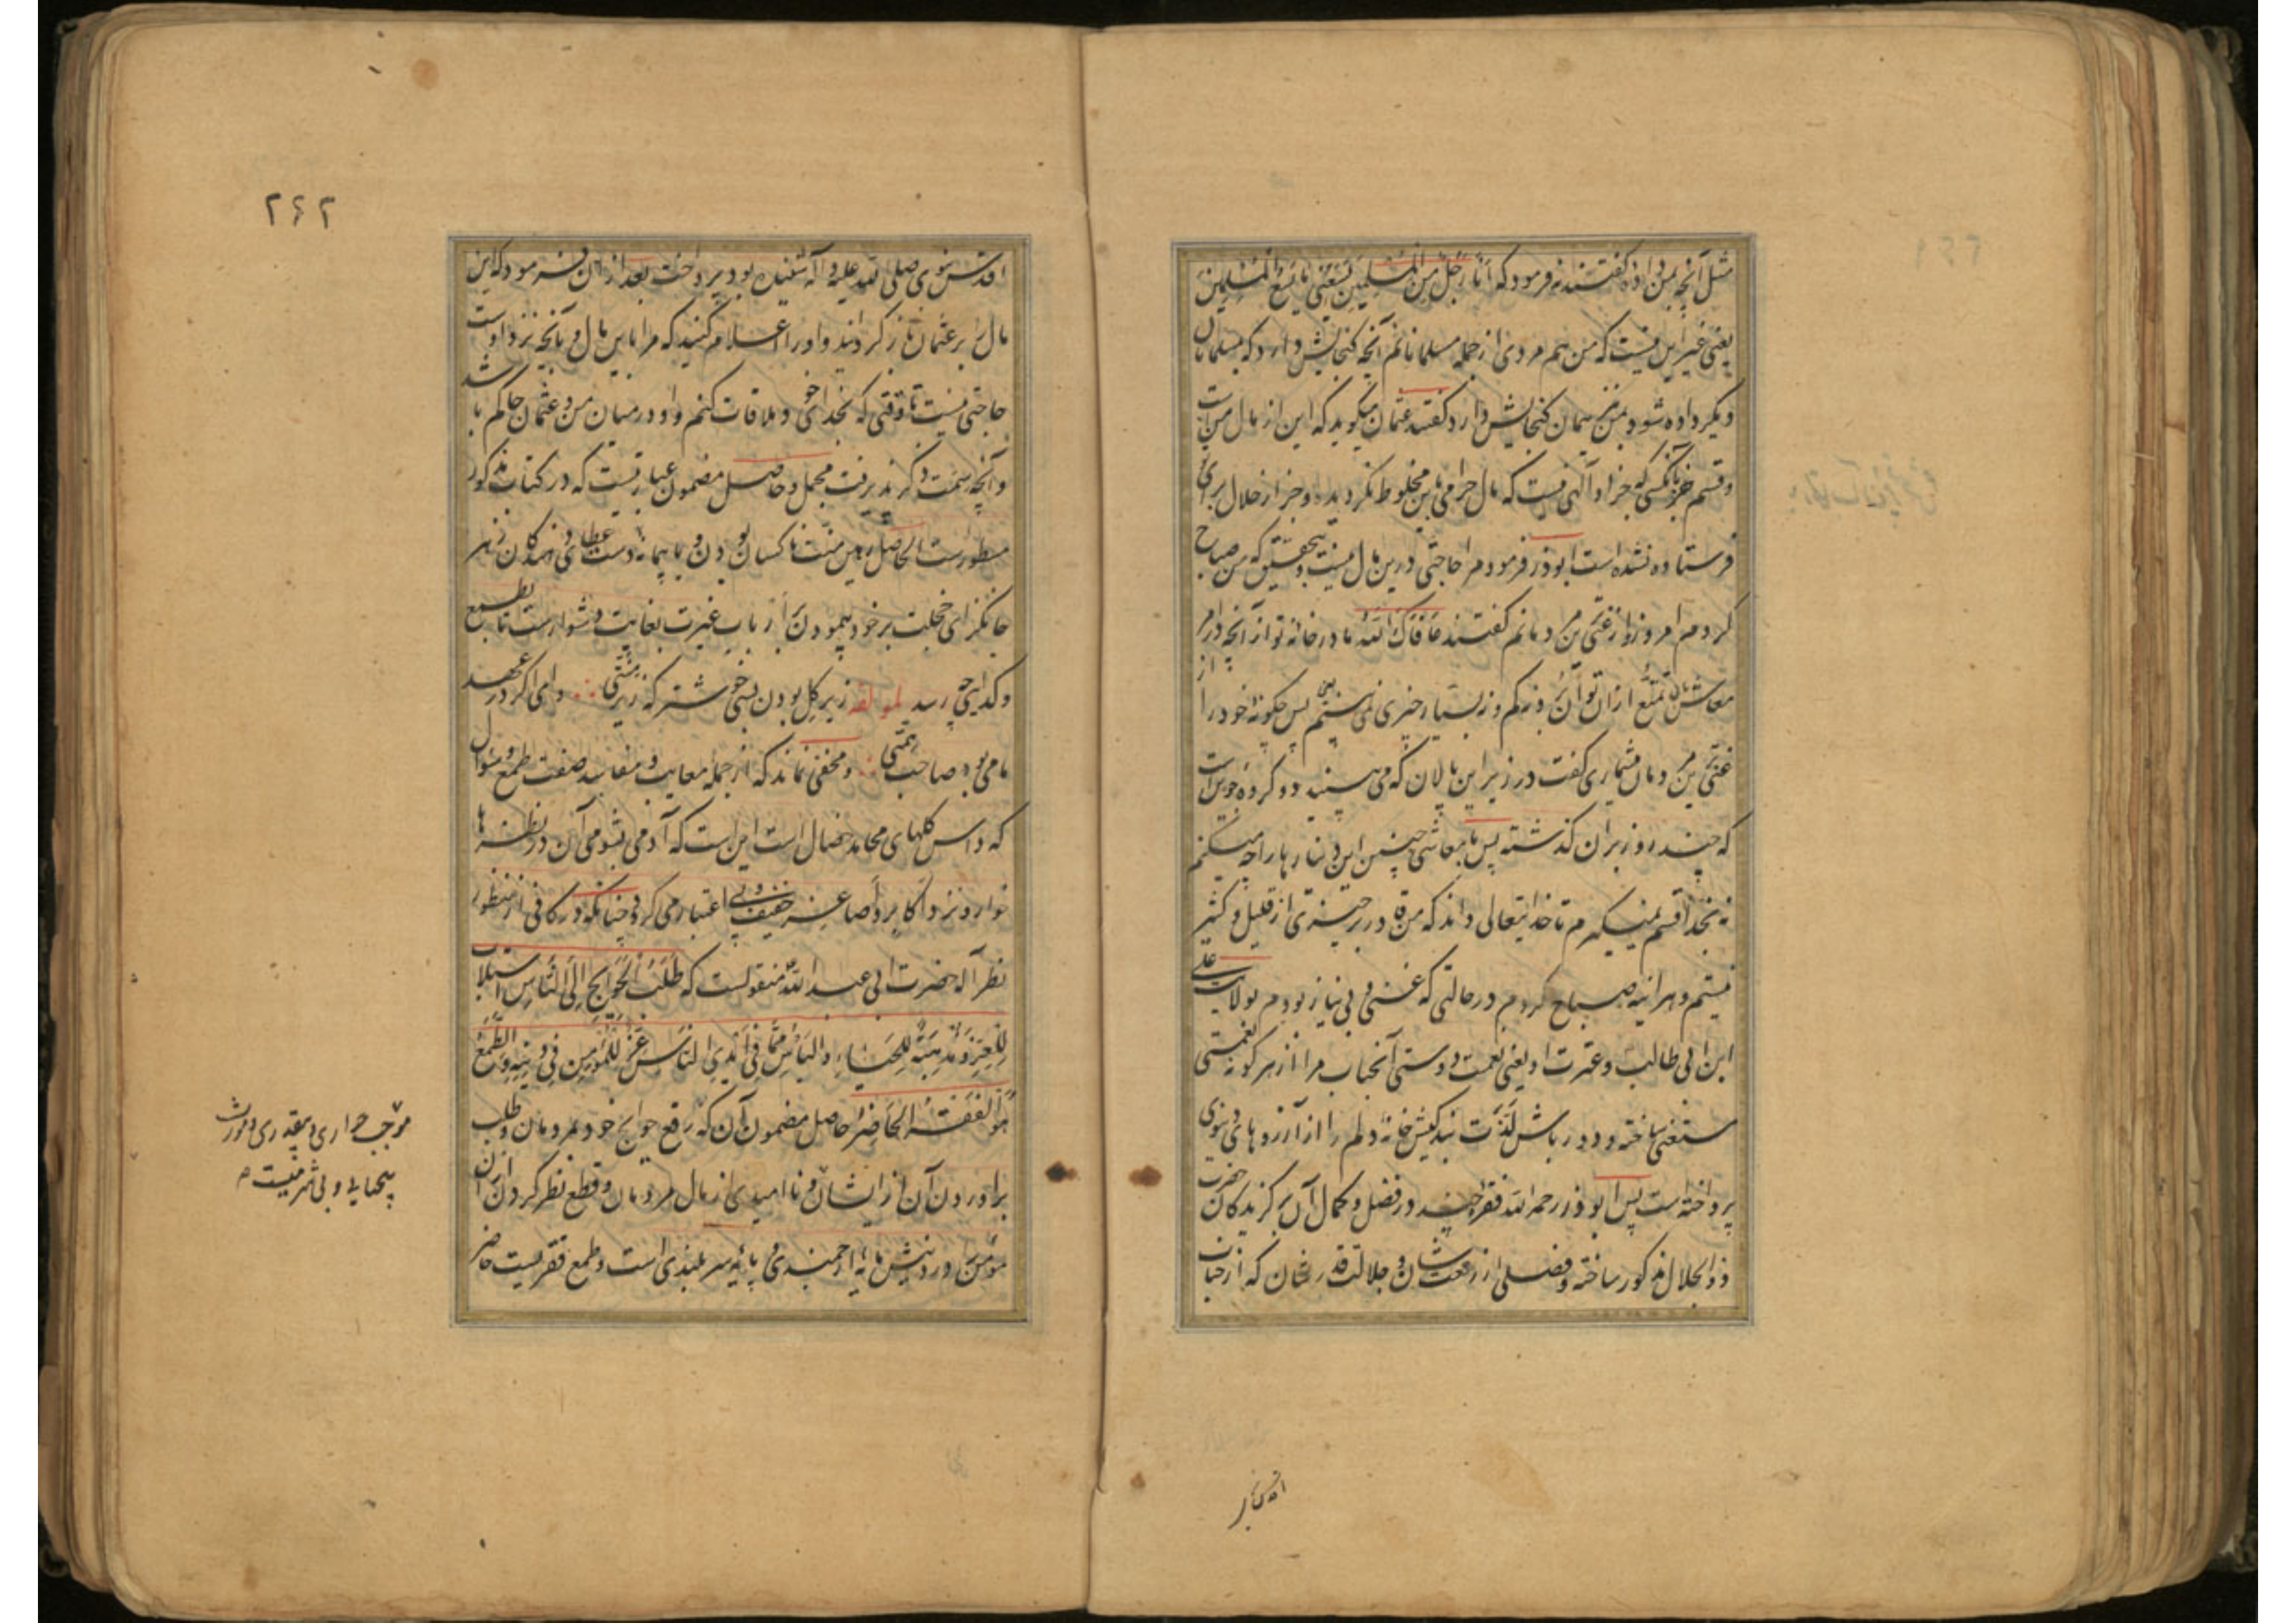 مثل آنچه بمن داده گفتند نه فرمود که انا رجل من المسلمین یسعنی ما یسع المسلمین
یعنی غیر این نیست که من هم مردی از جمله مسلمانانم آنچه گنجایش دارد که بمسلمانان
دیگر داده شود بمن نیز همان گنجایش دارد گفتند عثمان میگوید که این از مال من است
و قسم بآنکسی که جز او الهی نیست که مال حرامی باین مخلوط نگردیده و جز از حلال برای
فرستاده نشده است ابوذر فرمود مرا حاجتی درین مال نیست و بتحقیق که من صباح
کرده‌ام امروز و از غنی‌ترین مردمانم گفتند عافاک الله ما در خانه تو از آنچه در امر
معاش تمتع از ان توان برد از کم و بسیار چیزی نمی‌بینیم پس چگونه خود را از
غنی‌ترین مردمان میشماری گفت در زیر این پالان که می‌بینید دو گرده جو است
که چند روز بران گذشته پس با معاشی چنین این دینارها را چه میکنم
نه بخدا قسم نمیگیرم تا خدایتعالی داند که من قادر بر چیزی از قلیل و کثیر
نیستم و هر آینه صباح کردم در حالتی که غنی و بی نیاز بودم بولایت علی
ابن ابی طالب و عترت او یعنی نعمت دوستی آنجناب مرا از هر گونه نعمتی
مستغنی ساخته و دورباش لذت بندگیش خانه دلم را از آرزوهای دنیوی
پرداخته است پس ابوذر رحمه الله فقراتی چند در فضل و کمال آن برگزیدگان حضرت
ذوالجلال مذکور ساخته و فصلی از رفعت شان و جلالت قدر ایشان که از جناب
اقدس
۲۶۲
اقدس نبوی صلی الله علیه و آله شنیده بود پرداخت بعد از ان فرمود که این
مال را بر عثمان باز گردانید و او را اعلام کنید که مرا باین مال و بآنچه نزد اوست
حاجتی نیست تا وقتی که بخدای خود ملاقات کنم و او در میان من و عثمان حاکم باشد
و آنچه سمت ذکر پذیرفت مجمل و حاصل مضمون عبارتیست که در کتاب مذکور
مسطور است الحاصل رهین منت ناکسان بودن و با پیمانه دست عطای دهندگان زهر
جانگزای خجلت بر خود پیمودن ارباب غیرت بغایت دشوار است تا بطمع
و گدایی چه رسد لمولفه زیر گل بودن بسی خوشتر که زیر منتی وامی اگر در عهد
ما می بود صاحب همتی و مخفی نماند که از جمله معایب و مفاسد صفت طمع و سؤال
که داس گلهای محامد خصال است این است که آدمی بشومی آن در نظرها
خوار و نزد اکابر و اصاغر خفیف و بی اعتبار می گردد چنانکه در کافی از منظور
نظر آله حضرت ابی عبد الله منقولست که طلب الحوایج الی الناس استلاب
للعز و مذهبة للحیاء و الیأس مما فی ایدی الناس عز للمؤمن فی دینه و الطمع
هو الفقر الحاضر حاصل مضمون آن که رفع حوایج خود بمردمان و طلب
برآوردن آن از ایشان و ناامیدی از مال مردمان و قطع نظر کردن از ان
مؤمن را در دینش مایه ارجمندی و پایه سر بلندی است و طمع فقریست حاضر
موجب خواری و بیقدری و مورث
بیحیایی و بی شرمیست